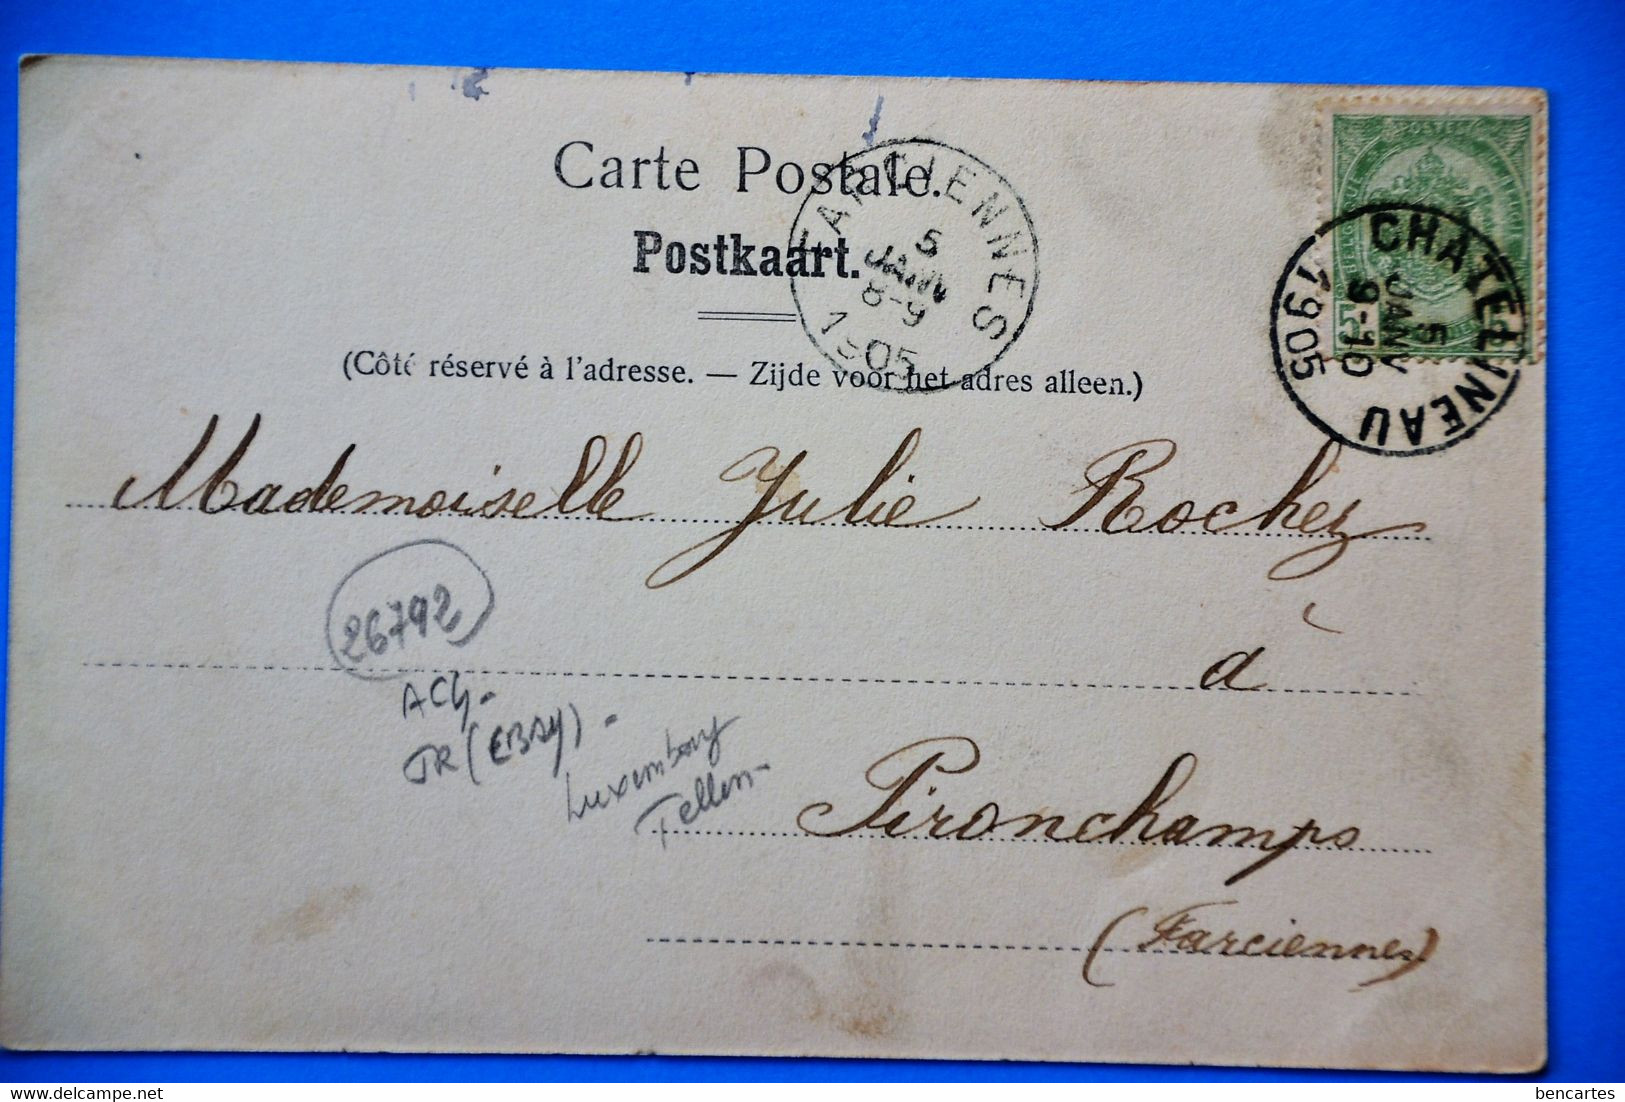 Carte Postale.
Postkaart.
(Côté réservé à l'adresse. — Zijde voor het adres alleen.)
FARCIENNES
5
JANV
8-9
1905
CHATELINEAU
5
JANV
9-10
1905
Mademoiselle Julie Rochez
à
Pironchamps
(Farciennes)
26792
TR (EBAY) -
Luxembourg
Tellin -
bencartes